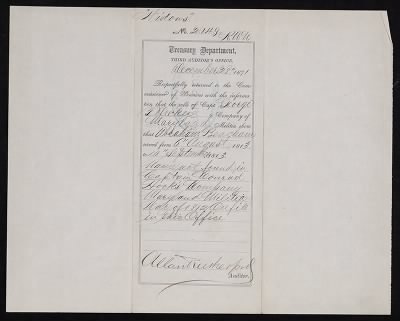 "Widows"
No. 20149
Treasury Department,
THIRD AUDITOR'S OFFICE,
December 28th 1871
Respectfully returned to the Com-
missioner of Pensions with the informa-
tion that the rolls of Capt George
Company of
Maryland Militia show
that Abraham
served from 6" August 1813
to " September 1813
Name not found in
Captain Conrad
Hooks Company
Maryland Militia
War of 1812 on file
in this Office
Allan Rutherford
Auditor.